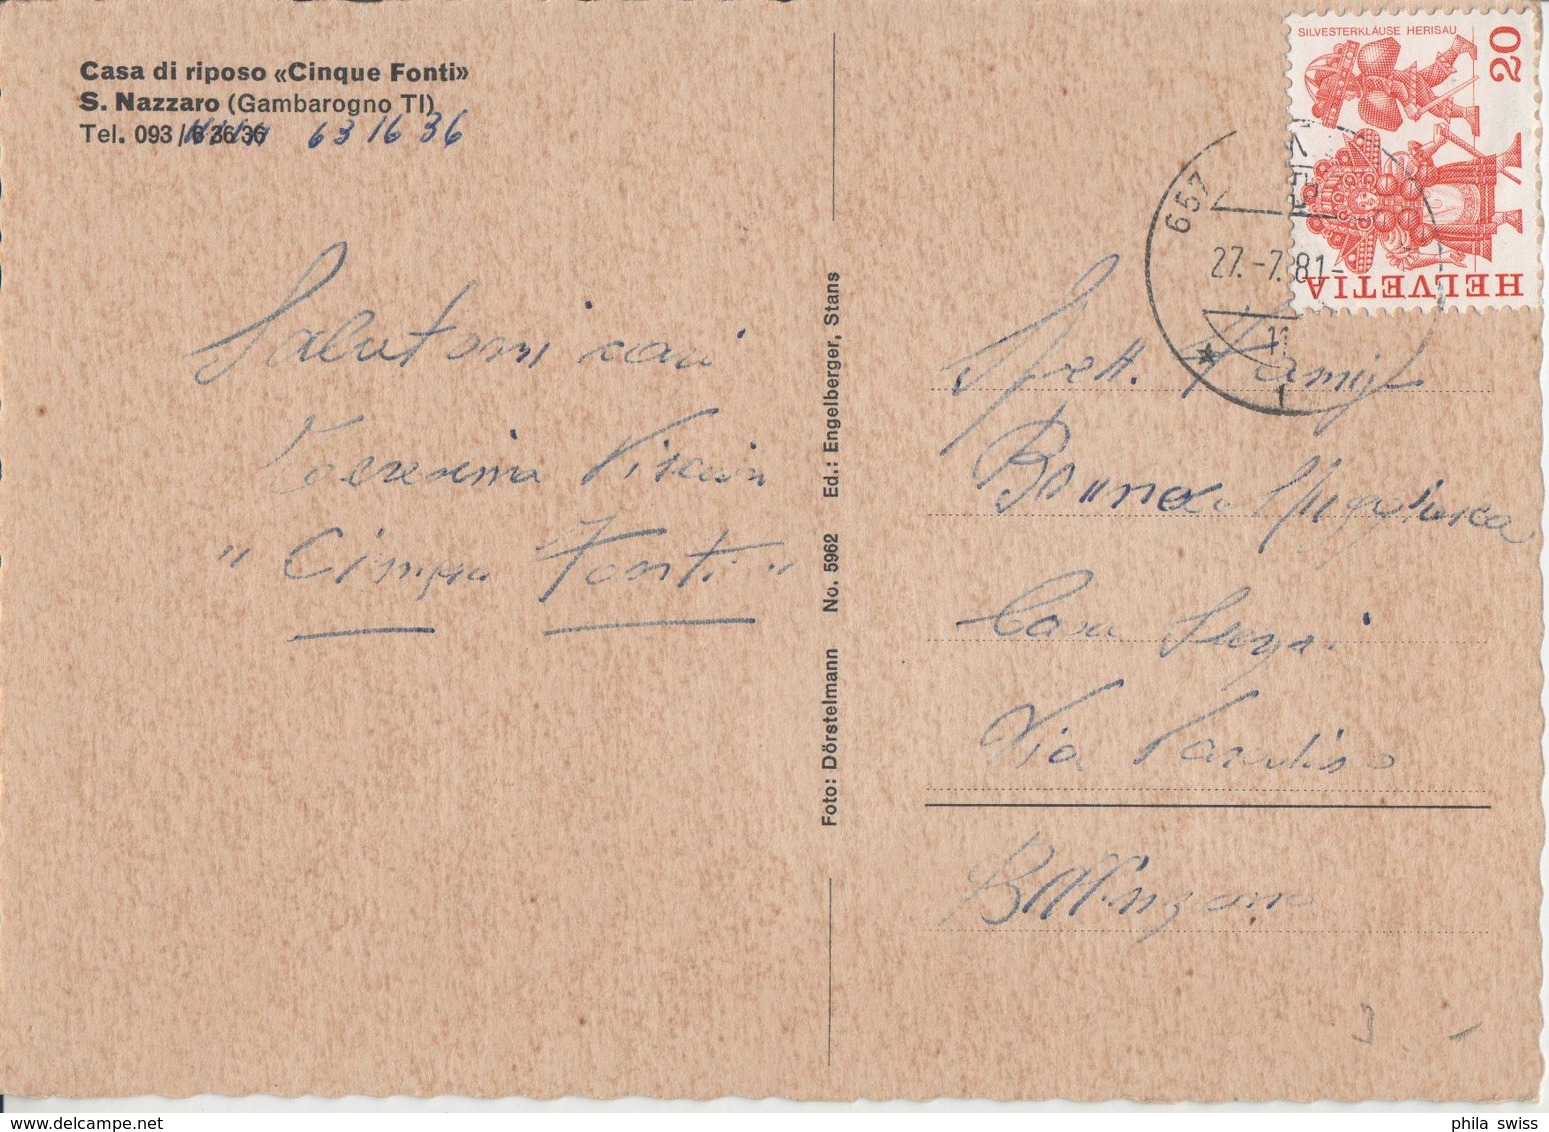 Casa di riposo «Cinque Fonti»
S. Nazzaro (Gambarogno TI)
Tel. 093 / 6 36 36 63 16 36
Salutoni cari
Teresina
" Cinque Fonti "
Foto: Dörstelmann No. 5962 Ed.: Engelberger, Stans
SILVESTERKLÄUSE HERISAU
20
HELVETIA
657
27.-7.81-
11
1
Spett. Famig
Bruno
Casa
Via Paradiso
Bellinzona
phila swiss